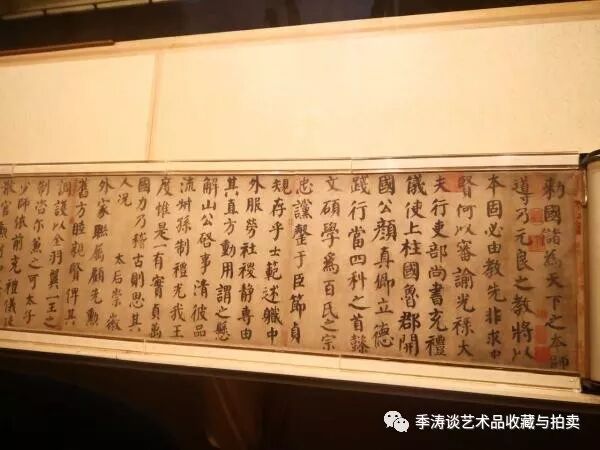 勑國儲為天下之本師
導乃元良之教將以
本固必由教先非求中
賢何以審諭光祿大
夫行吏部尚書充禮
儀使上柱國魯郡開
國公顏真卿立德
踐行當四科之首懿
文碩學為百氏之宗
忠讜罄于臣節貞
規存乎士範述職中
外服勞社稷靜專由
其直方動用謂之懸
解山公啟事清彼品
流叔孫制禮光我王
度惟是一有實貞萬
國力乃稽古則思其
人況 太后崇徽
外家聯屬顧先勳
舊方睦親賢俾其
調護以全羽翼一王之
制咨爾兼之可太子
少師依前充禮儀使
散官勳
季涛谈艺术品收藏与拍卖